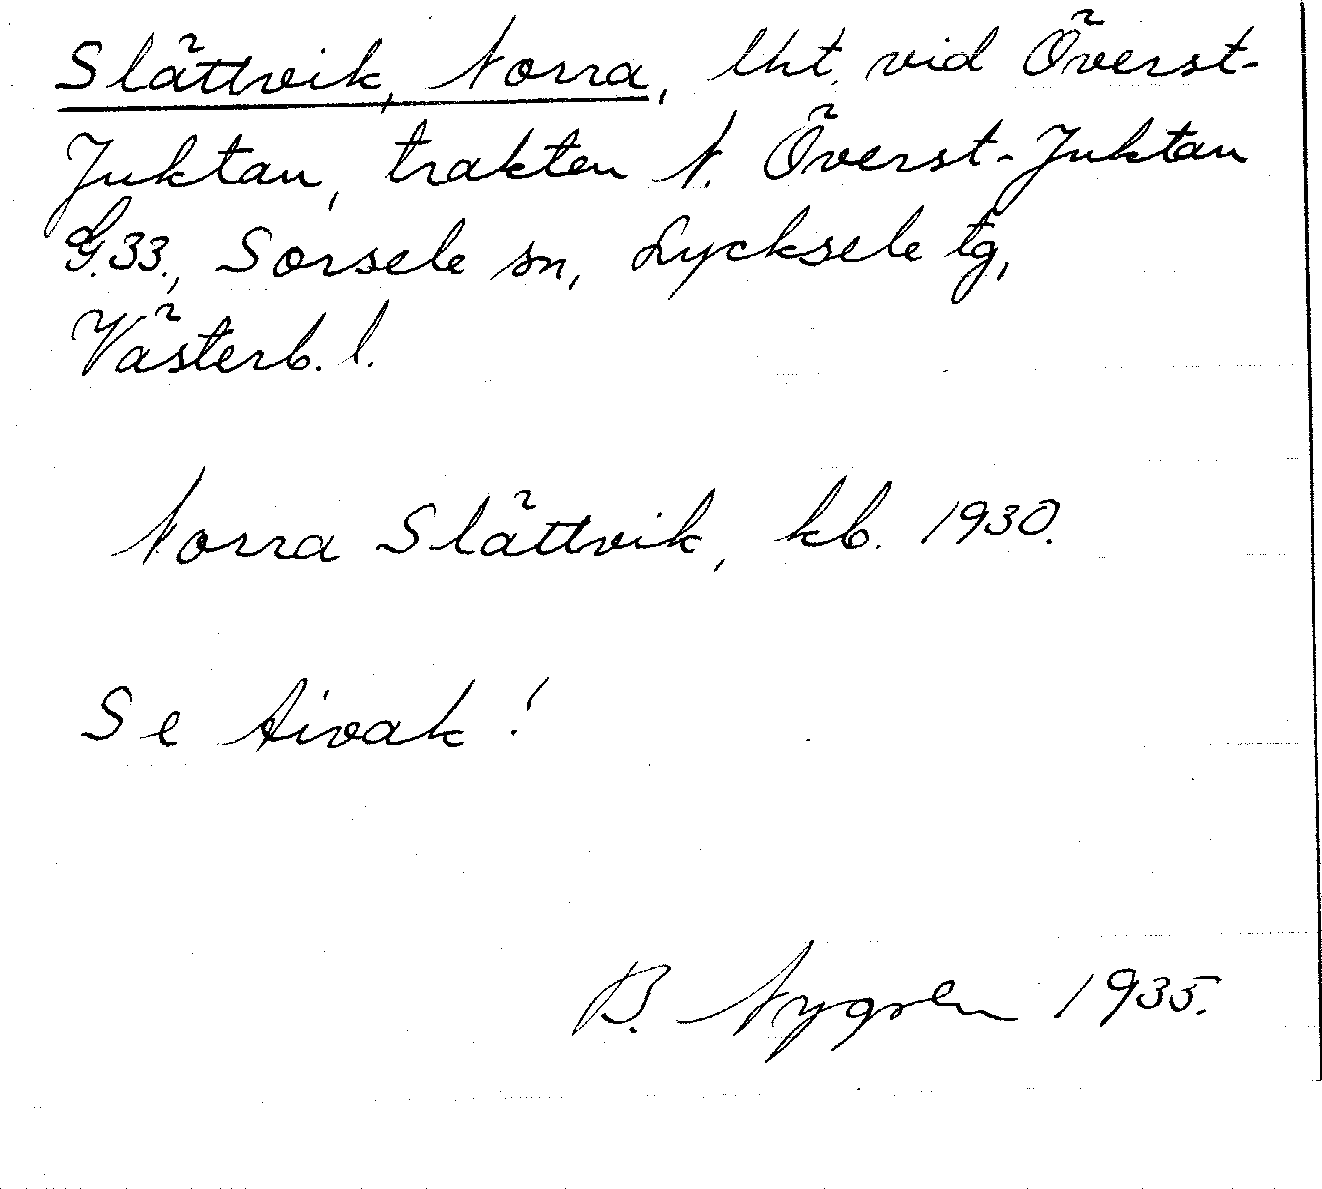 Slättvik, Norra, lht. vid Överst-
Juktan, trakten N. Överst-Juktan
G.33., Sorsele sn, Lycksele tg,
Västerb. l.
Norra Slättvik, kb. 1930.
Se Aivak!
B. Nygren 1935.